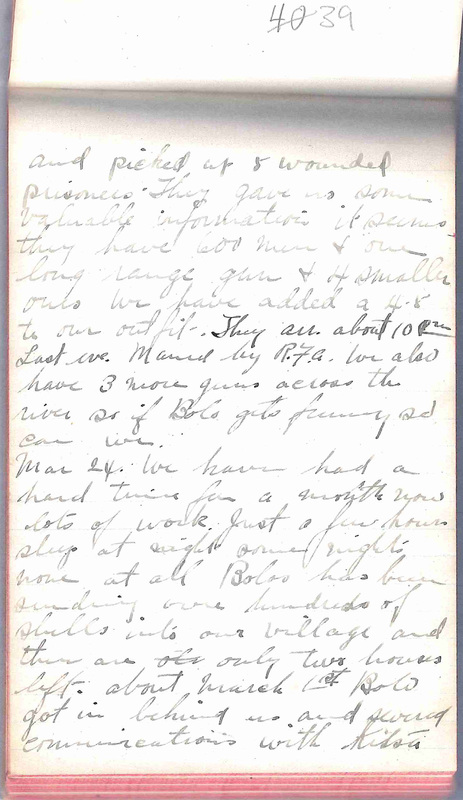 39
and picked up 8 wounded
prisoners. They gave us some
valuable information it seems
they have 600 men & one
long range gun & 4 smaller
ours we have added a 4.5
to our outfit. They arr. about 10 pm
Last eve. Maned by R.F.A. We also
have 3 more guns across the
river so if Bolo gets funny so
can we.
Mar 24. We have had a
hard time for a month now
lots of work. Just a few hours
sleep at night some nights
none at all Bolos has been
sending over hundreds of
shells into our village and
there are only two houses
left. about March 1st Bolo
got in behind us and severed
communications with